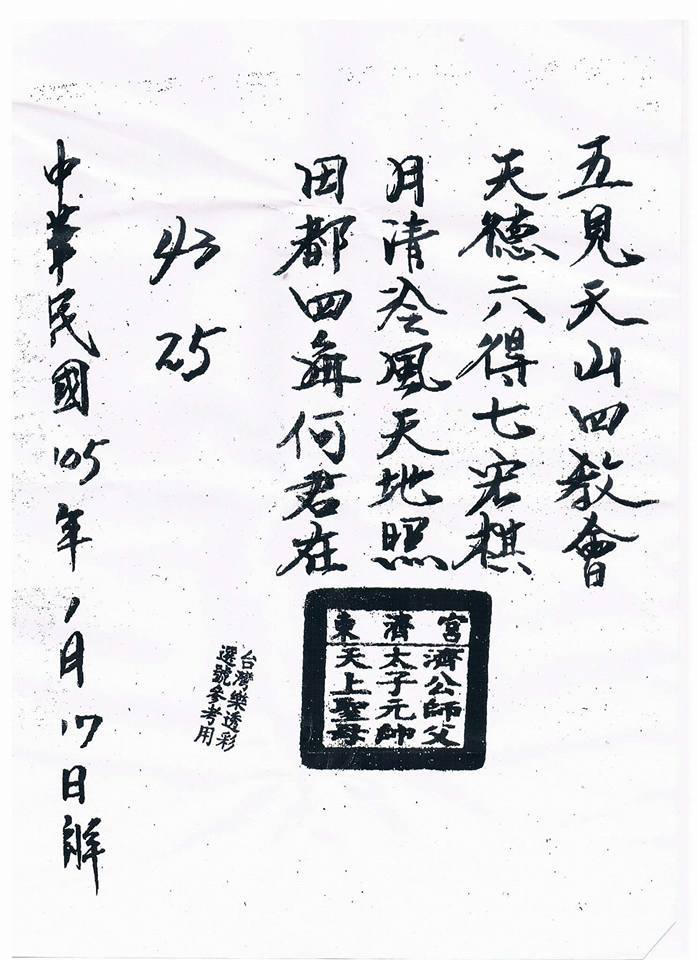 五見天山四教會
天德六得七宏棋
月清風天地照
田都四海何君在
43
25
中華民國105年1月17日解
東濟宮
濟公師父
太子元帥
天上聖母
台灣樂透彩
選號參考用